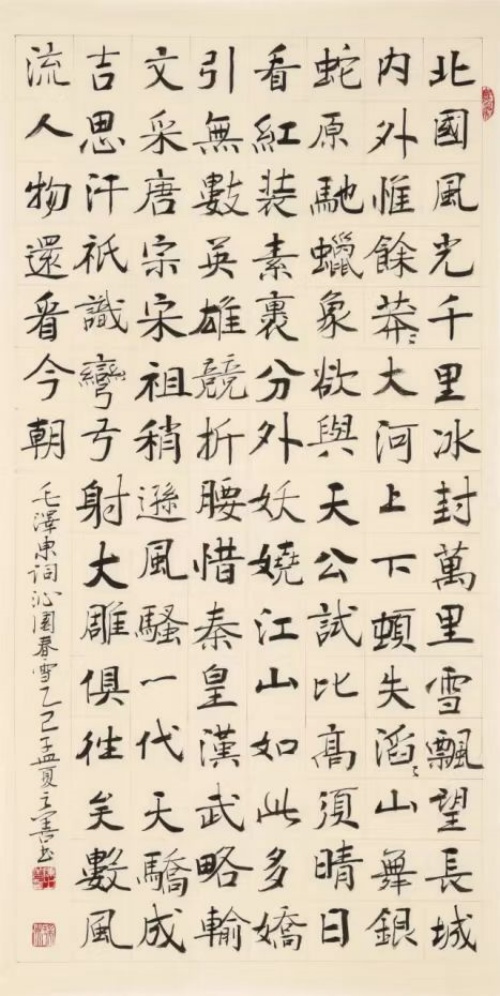 北國風光千里冰封萬里雪飄望長城
内外惟餘莽〻大河上下頓失滔〻山舞銀
蛇原馳蠟象欲與天公試比高須晴日
看紅装素裹分外妖嬈江山如此多嬌
引無數英雄競折腰惜秦皇漢武略輸
文采唐宗宋祖稍遜風騷一代天驕成
吉思汗祇識彎弓射大雕俱往矣數風
流人物還看今朝
毛澤東詞沁園春雪乙巳孟夏立善书